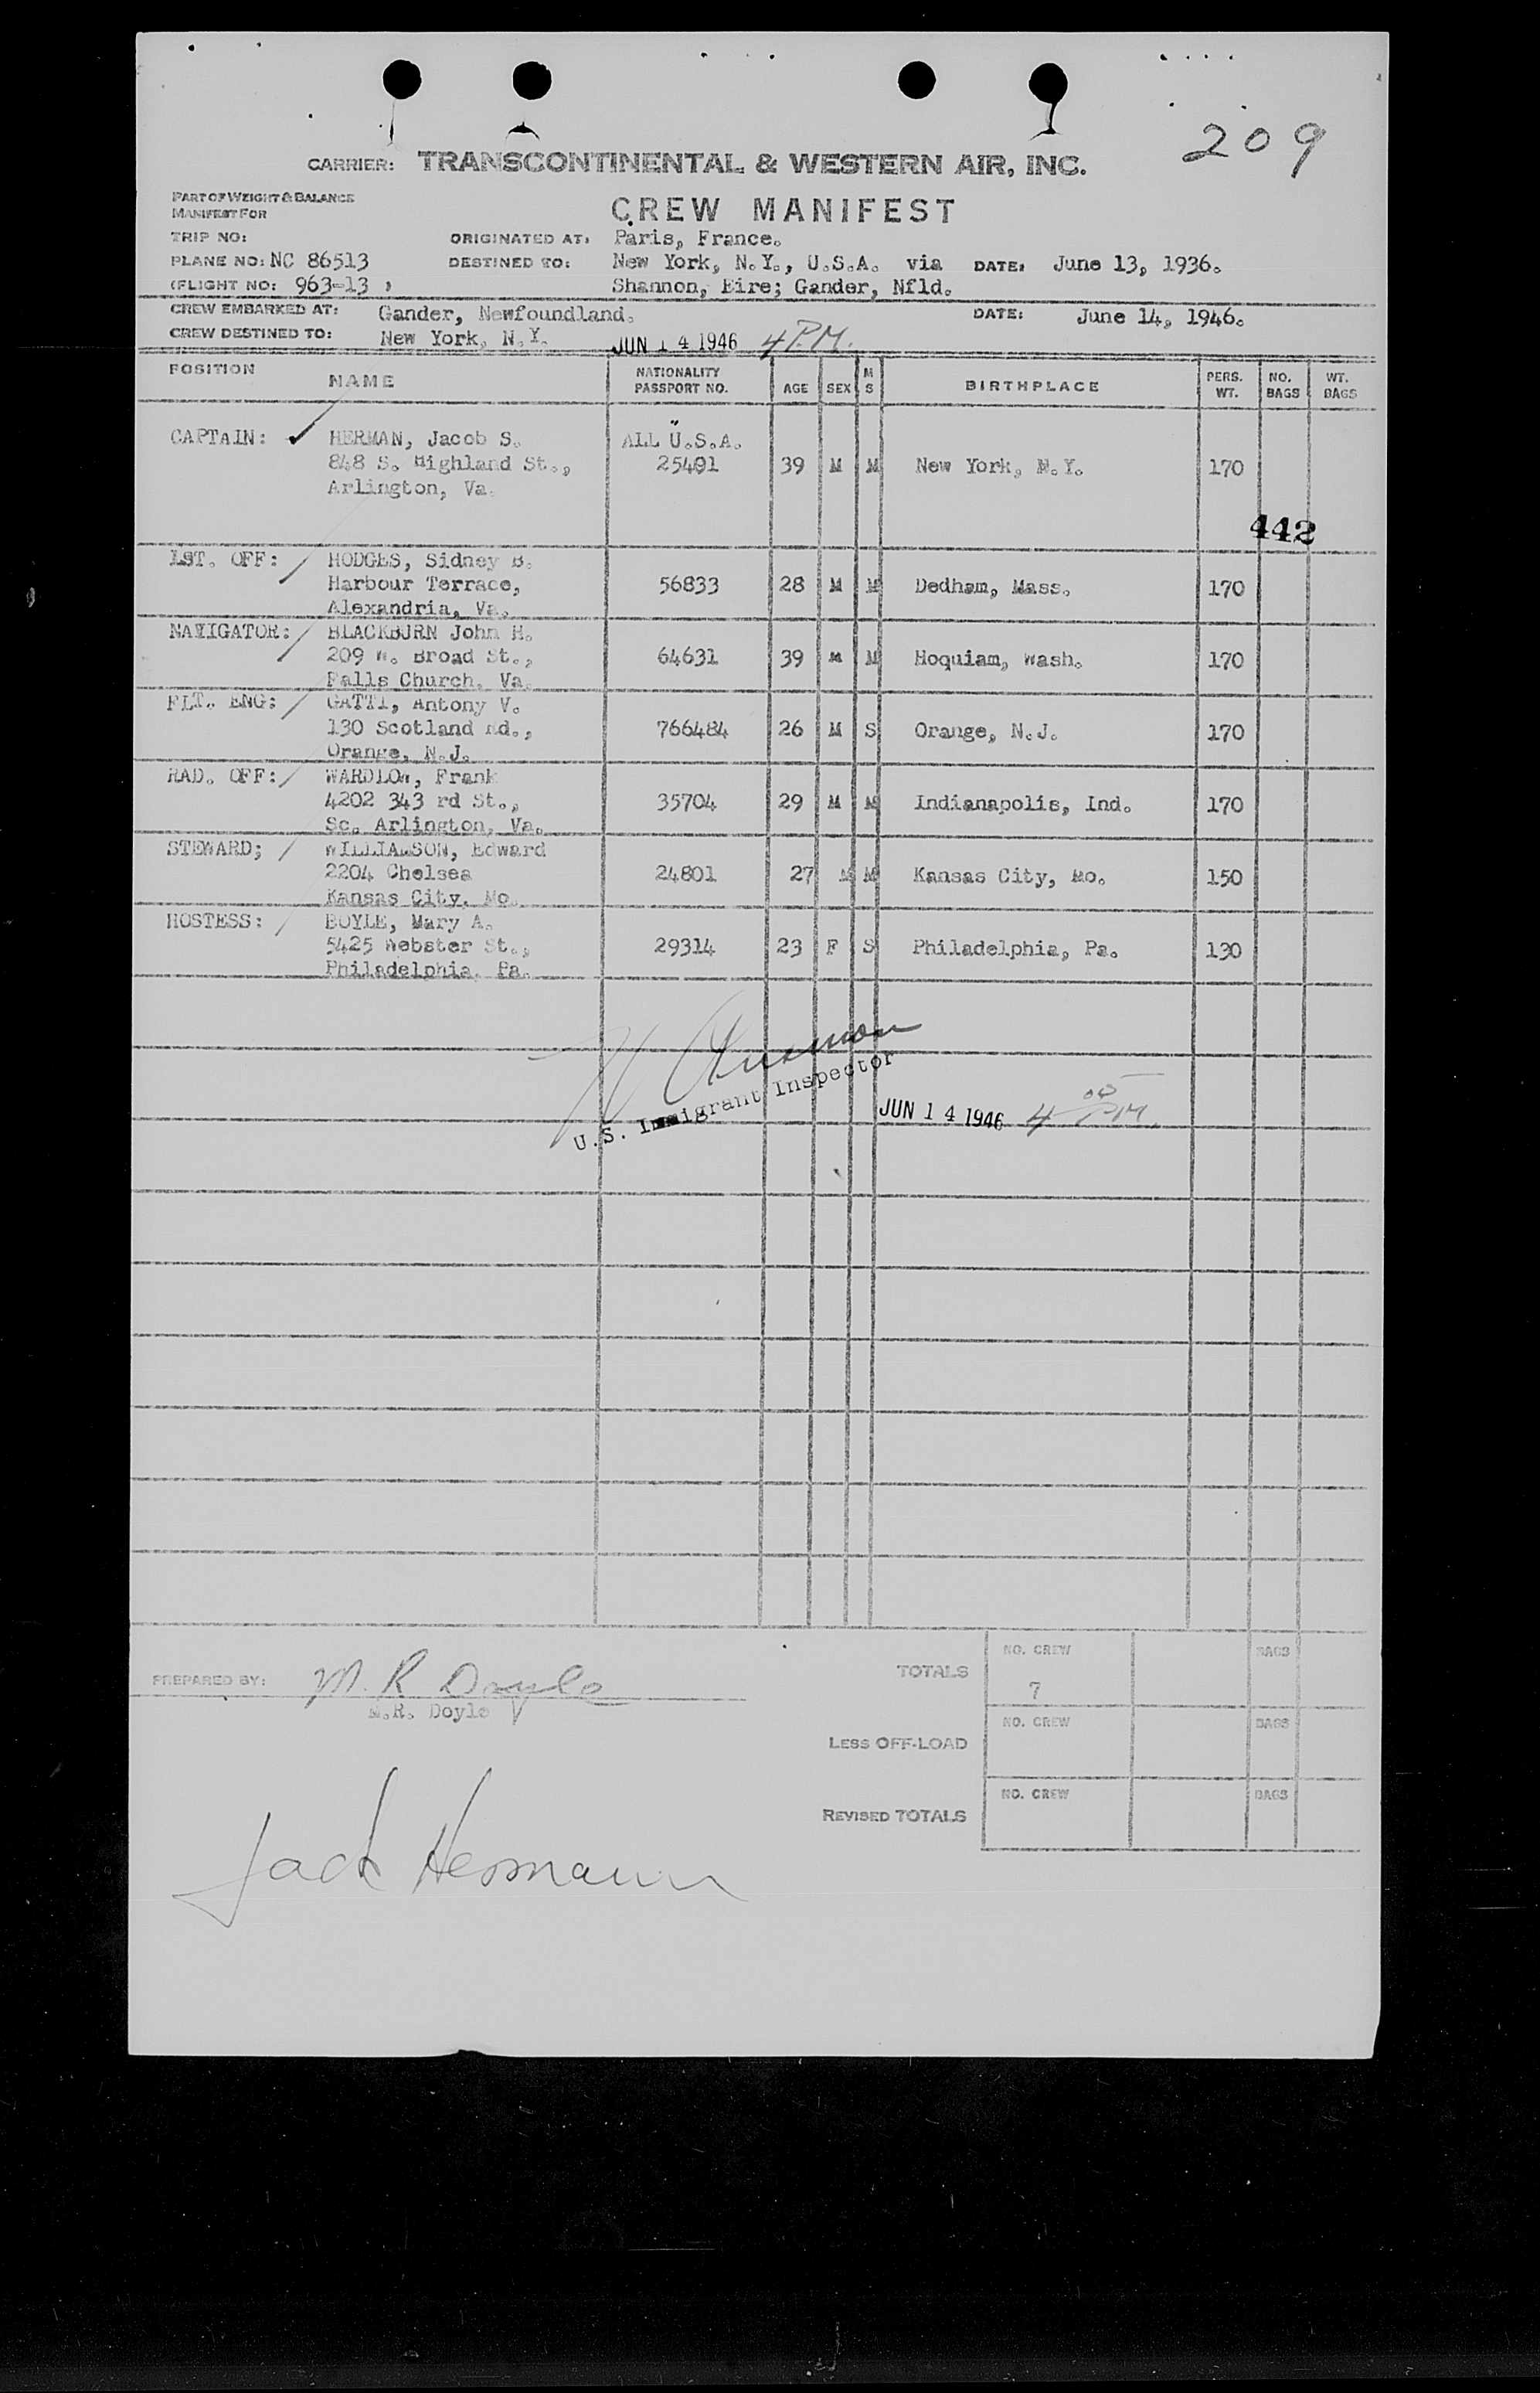 209
CARRIER: TRANSCONTINENTAL & WESTERN AIR, INC.
PART OF WEIGHT & BALANCE
MANIFEST FOR
CREW MANIFEST
TRIP NO: ORIGINATED AT: Paris, France.
PLANE NO: NC 86513 DESTINED TO: New York, N.Y., U.S.A. via DATE: June 13, 1936.
(FLIGHT NO: 963-13 ) Shannon, Eire; Gander, Nfld.
CREW EMBARKED AT: Gander, Newfoundland. DATE: June 14, 1946.
CREW DESTINED TO: New York, N.Y. JUN 14 1946 4 P.M.
POSITION NAME NATIONALITY PASSPORT NO. AGE SEX M S BIRTHPLACE PERS. WT. NO. BAGS WT. BAGS
CAPTAIN: HERMAN, Jacob S. ALL U.S.A.
848 S. Highland St., 25491 39 M M New York, N.Y. 170
Arlington, Va.
442
1ST. OFF: HODGES, Sidney B.
Harbour Terrace, 56833 28 M M Dedham, Mass. 170
Alexandria, Va.
NAVIGATOR: BLACKBURN John H.
209 W. Broad St., 64631 39 M M Hoquiam, Wash. 170
Falls Church, Va.
FLT. ENG: GATTI, Antony V.
130 Scotland Rd., 766484 26 M S Orange, N.J. 170
Orange, N.J.
RAD. OFF: WARDLOW, Frank
4202 343 rd St., 35704 29 M M Indianapolis, Ind. 170
So. Arlington, Va.
STEWARD; WILLIAMSON, Edward
2204 Chelsea 24801 27 M M Kansas City, Mo. 150
Kansas City, Mo.
HOSTESS: BOYLE, Mary A.
5425 Webster St., 29314 23 F S Philadelphia, Pa. 130
Philadelphia, Pa.
U.S. Immigrant Inspector
JUN 14 1946 4 00 PM.
PREPARED BY: M. R. Doyle
M.R. Doyle
TOTALS NO. CREW 7 BAGS
LESS OFF-LOAD NO. CREW BAGS
REVISED TOTALS NO. CREW BAGS
Jack Hermann